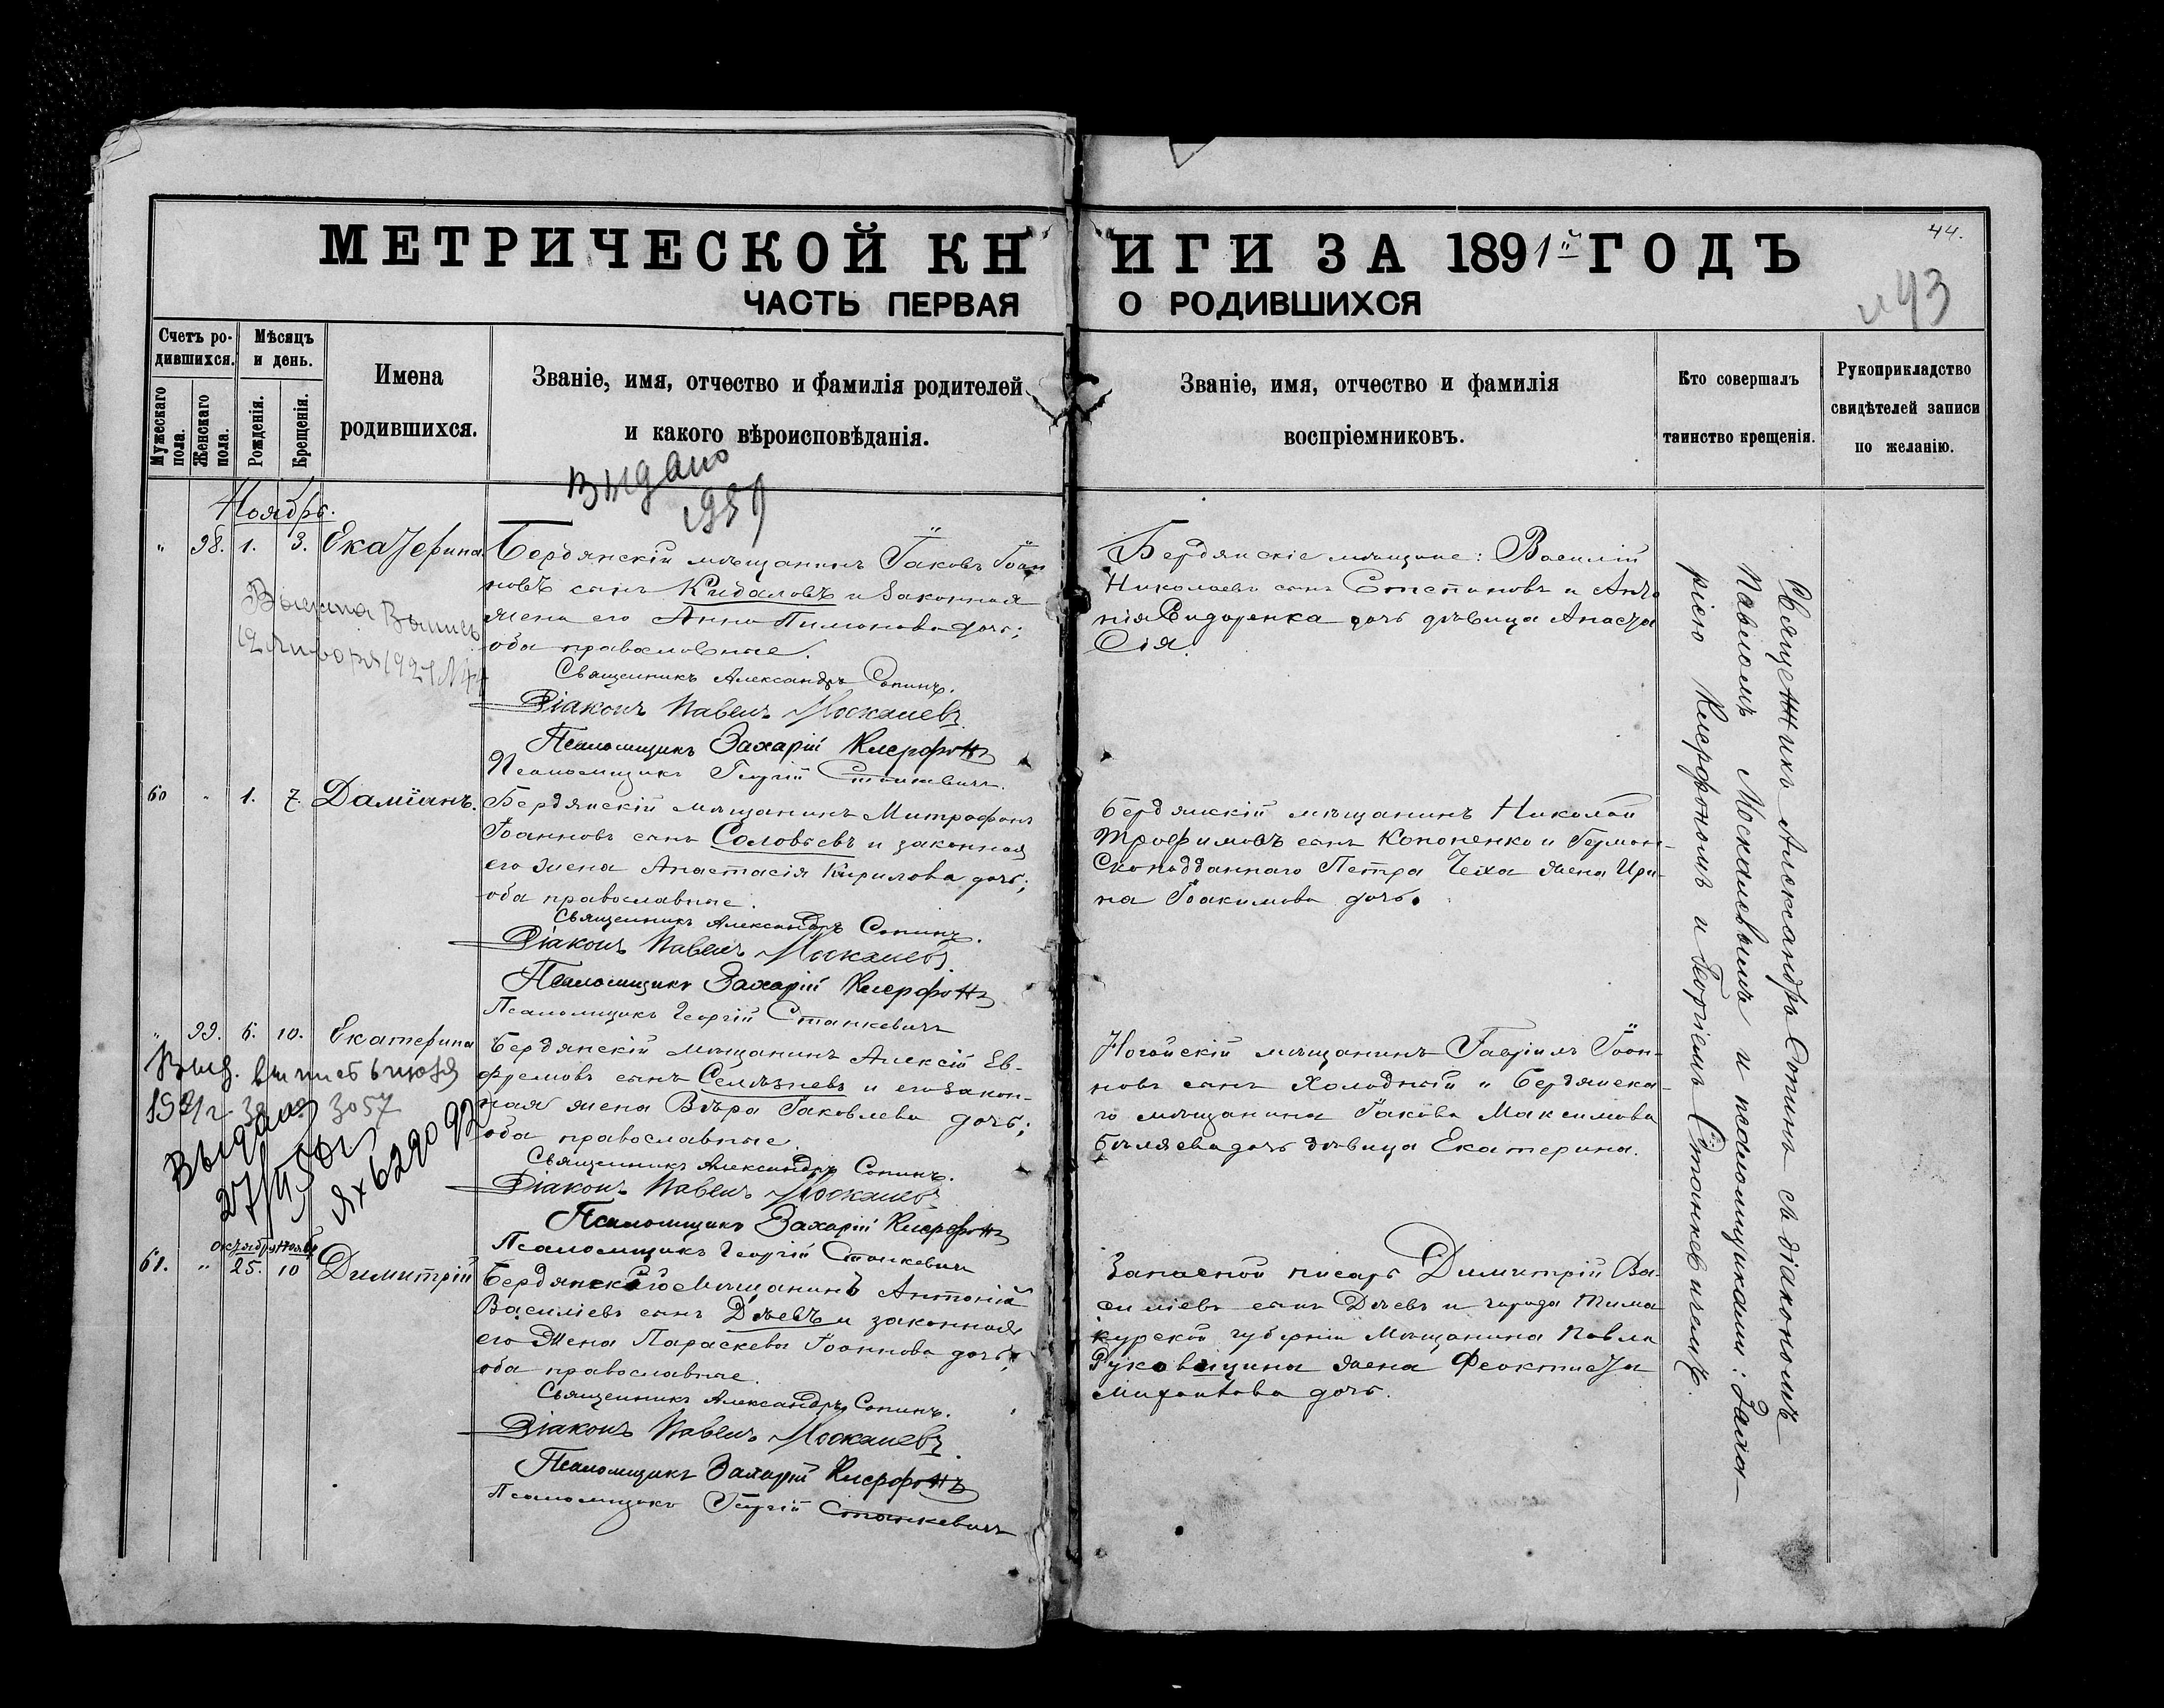 МЕТРИЧЕСКОЙ КНИГИ ЗА 1891й ГОДЪ
44.
ЧАСТЬ ПЕРВАЯ О РОДИВШИХСЯ
43
Счетъ ро-
дившихся.
Мужескаго пола.
Женскаго пола.
Мѣсяцъ
и день.
Рожденія.
Крещенія.
Имена
родившихся.
Званіе, имя, отчество и фамилія родителей
и какого вѣроисповѣданія.
Званіе, имя, отчество и фамилія
воспріемниковъ.
Кто совершалъ
таинство крещенія.
Рукоприкладство
свидѣтелей записи
по желанію.
Выдано
Ноябрь.
" 98. 1. 3. Екатерина
Бердянскій мѣщанинъ Іаковъ Іоан
новъ сынъ Кидаловъ и законная
жена его Анна Пимонова дочь;
оба православные.
Священникъ Александръ Сопинъ.
Діаконъ Павелъ Москалевъ.
Псаломщикъ Захарій Ксерфонъ
Псаломщикъ Георгій Станкевичъ.
Бердянскіе мѣщане: Василій
Николаевъ сынъ Степановъ и Анто
нія Сидоренка дочь дѣвица Анаста
сія.
60 " 1. 7. Даміанъ.
Бердянскій мѣщанинъ Митрофанъ
Іоанновъ сынъ Соловьевъ и законная
его жена Анастасія Кирилова дочь;
оба православные.
Священникъ Александръ Сопинъ.
Діаконъ Павелъ Москалевъ.
Псаломщикъ Захарій Ксерфонъ
Псаломщикъ Георгій Станкевичъ
Бердянскій мѣщанинъ Николай
Трофимовъ сынъ Кононенко и Герман-
скоподданнаго Петра Чеха жена Ири-
на Іоакимова дочь.
" 99. 6. 10. Екатерина
Выд. выпись 6 июня
Выдано
Бердянскій мѣщанинъ Алексій Ев-
фремовъ сынъ Селезневъ и его закон-
ная жена Вѣра Іаковлева дочь;
оба православные.
Священникъ Александръ Сопинъ.
Діаконъ Павелъ Москалевъ
Псаломщикъ Захарій Ксерфонъ
Псаломщикъ Георгій Станкевичъ
Ногайскій мѣщанинъ Гавріилъ Іоан-
новъ сынъ Холодный и Бердянска-
го мѣщанина Іакова Максимова
Бѣляева дочь дѣвица Екатерина.
Октября Ноября
61. " 25. 10 Димитрій
Бердянскій мѣщанинъ Антоній
Василіевъ сынъ Дѣевъ и законная
его жена Параскева Іоаннова дочь;
оба православные.
Священникъ Александръ Сопинъ.
Діаконъ Павелъ Москалевъ
Псаломщикъ Захарій Ксерфонъ
Псаломщикъ Георгій Станкевичъ
Запасной писарь Димитрій Ва-
силіевъ сынъ Дѣевъ и города Тима
курской губерніи мѣщанина Павла
жена Феоктиста
дочь.
Священникъ Александръ Сопинъ съ діакономъ
Павломъ Москалевымъ и псаломщиками: Заха-
ріею Ксерфономъ и Георгіемъ Станкевичемъ.